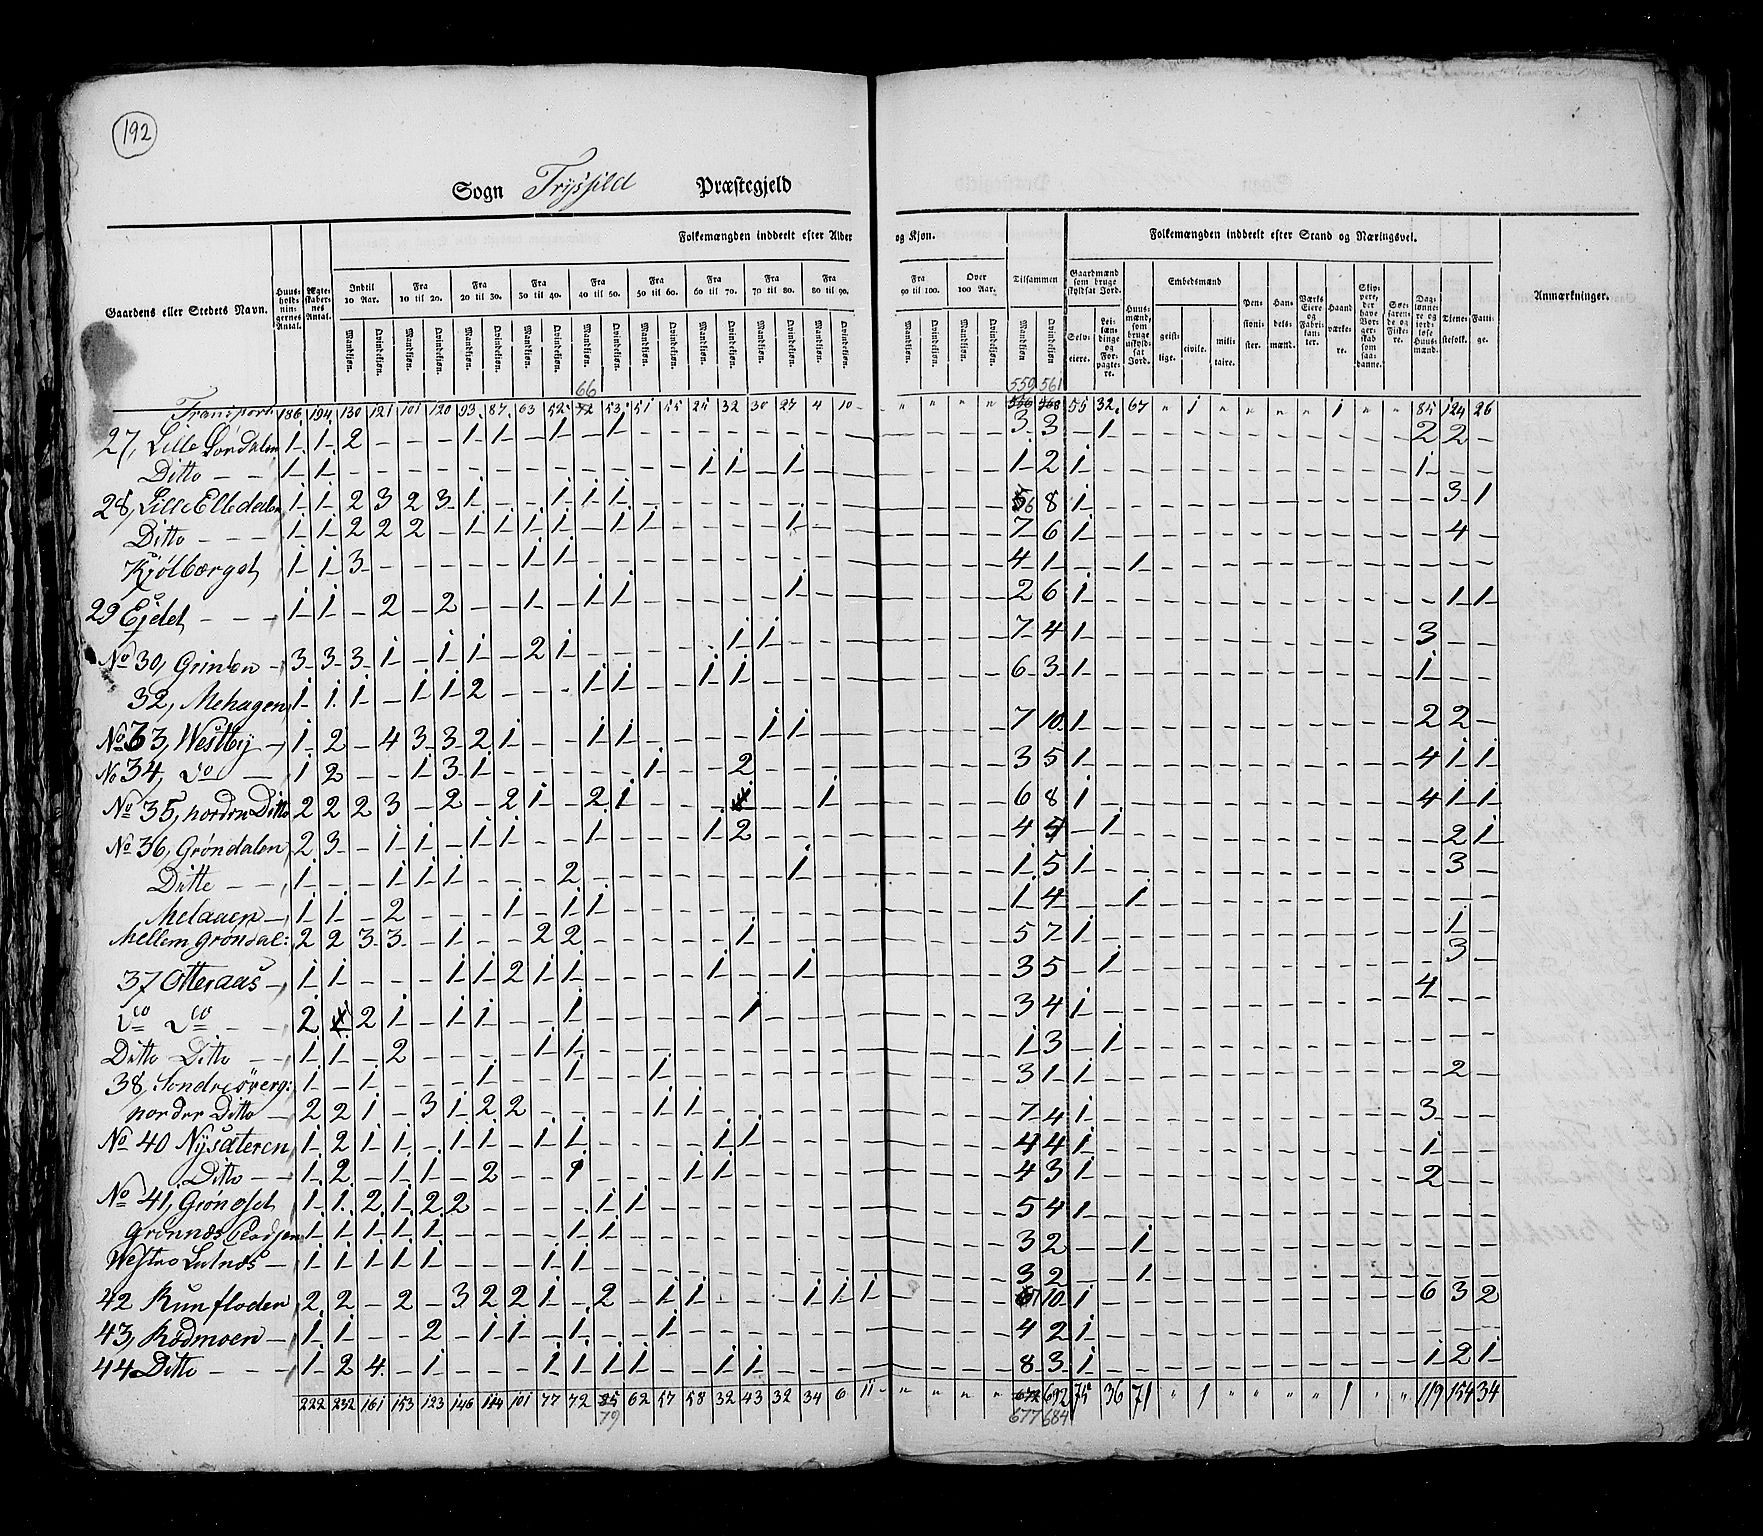 192
Sogn Trysfild Præstegjeld
Folkemængden inddeelt efter Alder og Kjøn. Folkemængden inddeelt efter Stand og Næringsvei.
Gaardens eller Stedets Navn. Huusholdningernes Antal. Ægteskabernes Antal. Indtil 10 Aar. Fra 10 til 20. Fra 20 til 30. Fra 30 til 40. Fra 40 til 50. Fra 50 til 60. Fra 60 til 70. Fra 70 til 80. Fra 80 til 90. Fra 90 til 100. Over 100 Aar. Tilsammen Gaardmænd som bruge skyldsat Jord. Huusmænd, som bruge uskyldsat Jord. Embedsmænd Pensionister. Handelsmænd. Værks Eiere og Fabrikanter. Haandværkere. Skippere, der have Borgerskab som saadanne. Søefarende og Fiskere. Daglønnere og jordløse Huusmænd. Tjenestefolk. Fattige. Anmærkninger.
Mandkjøn. Qvindekjøn. Selveiere. Leilændinge og Forpagtere. geistlige. civile. militaire.
66 559 561
Transport 186 194 130 121 101 120 93 87 63 52 72 53 51 55 25 32 30 27 4 10 " " " " 556 568 55 32 67 " 1 " " " " 1 " " 85 124 26
27, Lille Sørdalen 1 1 2 - - - 1 1 - 1 - 1 3 3 - 1 2 2 -
Ditto - - 1 1 - 1 1 - 1 1 2 1 1
28, Lille Elledalen 1 1 2 3 2 3 1 - - 1 1 1 6 8 1 3 1
Ditto - - - 1 1 2 2 2 - 1 1 1 1 - 1 1 - 1 7 6 1 4 -
Kjølberget 1 1 3 - 1 1 4 1 - - 1
29 Ejdet - - - 1 1 - 2 - 2 - - 1 - 1 1 - 1 2 6 1 1 1
No 30, Grinden - 3 3 3 1 - 1 1 - 2 1 - 1 1 7 4 1 3 - -
32, Mehagen 1 1 1 - 1 1 2 - - - 1 1 - - 1 1 6 3 1 1 - -
No 33, Westby - 1 2 - 4 3 3 2 1 - - 1 1 - 1 1 7 10 1 2 2 -
No 34, Do - 1 2 - - 1 3 1 - 1 - - 2 3 5 1 4 1 1
No 35, nordre Ditto 2 2 2 3 - 2 - 2 1 - 2 1 - 1 6 8 1 4 1 1
No 36, Grøndalen 2 3 - 1 1 - 1 1 - - 1 - 1 2 4 5 - 1 2 1
Ditto - - 1 - - 1 1 1 - - - 2 - 1 1 5 1 3 -
Melaaen - 1 1 - 2 - - - 1 - 1 1 1 4 - - 1
Mellem Grøndal: 2 2 3 3 - 1 - - 2 2 - 1 5 7 1 1 -
37 Otteraas - 1 1 - - - 1 1 2 1 1 - 1 - - 1 3 5 - 1 3 -
Do Do - - 2 2 1 - 1 1 - - 1 - 1 3 4 1 4 - -
Ditto Ditto - - 1 1 - 2 - 1 1 1 3 - 1
38, Søndre 1 - 1 - - - 1 - - 1 - - 1 3 1 1 2 -
nordre Ditto - 2 2 1 - 3 1 2 2 - 1 1 7 4 1 3 - -
No 40 Nysæteren 1 2 1 1 - 1 1 - 1 1 - 1 1 4 4 1 1 - -
Ditto - 1 2 - 1 1 - 2 - - 1 - 1 1 4 3 1 2 - -
No 41, Grønoset 1 1 2 1 2 2 - 1 1 5 4 1
Grønnæs 1 1 1 1 1 - 1 1 3 2 - - 1
Westre Lutnæs - 1 1 1 1 1 - 1 1 3 2 - - 1
42 Runfloden 2 2 - 2 - 3 2 2 1 - 2 - 1 1 - 1 1 1 10 1 6 3 2
43, Rødmoen - 1 1 - - 2 - 1 1 - 1 - - 1 4 2 1
44 Ditto - - - 1 2 4 - 1 - - - 1 1 1 1 - - 1 1 8 3 1 1 2 1
222 232 161 153 123 146 114 101 77 72 85 62 57 58 32 43 32 34 6 11 " " " " 672 692 75 36 71 " 1 " " " " 1 " " 119 154 34
79 677 684